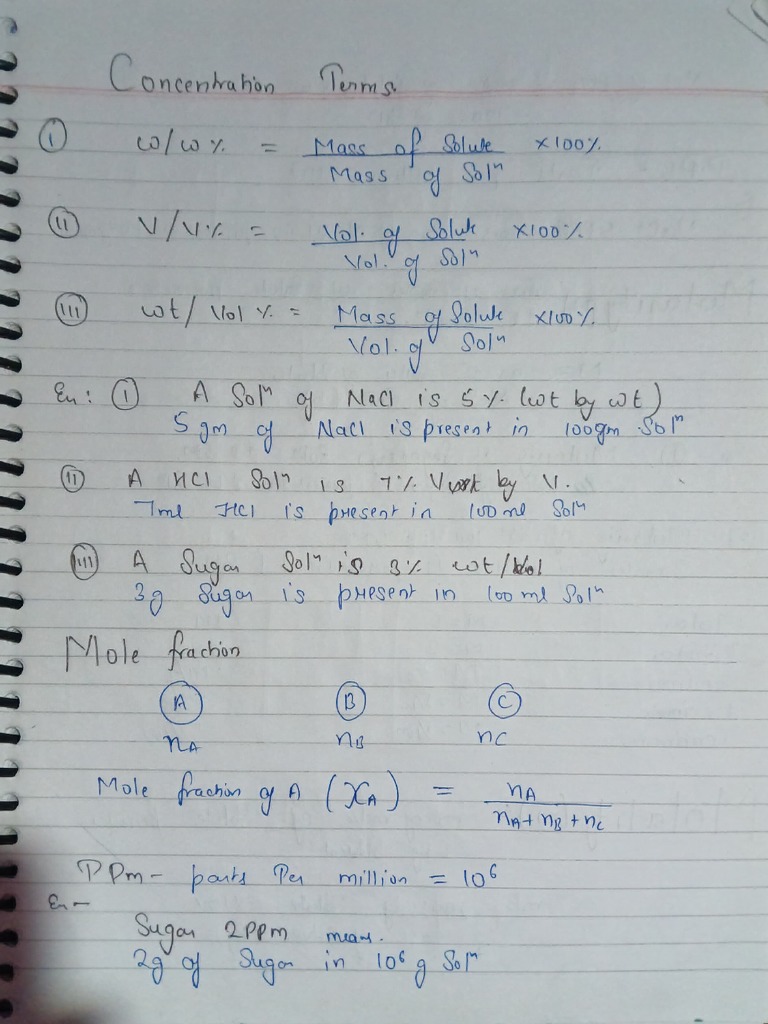 Concentration Terms
(i) w/w % = Mass of Solute / Mass of Solⁿ ×100%
(ii) V/V% = Vol. of Solute / Vol. of Solⁿ ×100%
(iii) wt/Vol % = Mass of Solute / Vol. of Solⁿ ×100%
Ex: (i) A Solⁿ of NaCl is 5% (wt by wt)
5 gm of NaCl is present in 100gm Solⁿ
(ii) A HCl Solⁿ is 7% V by V.
7ml HCl is present in 100 ml Solⁿ
(iii) A Sugar Solⁿ is 3% wt/Vol
3g Sugar is present in 100 ml Solⁿ
Mole fraction
A B C
nA nB nC
Mole fraction of A (XA) = nA / nA + nB + nC
PPm - parts Per million = 10⁶
Ex-
Sugar 2PPm means.
2g of Sugar in 10⁶ g Solⁿ